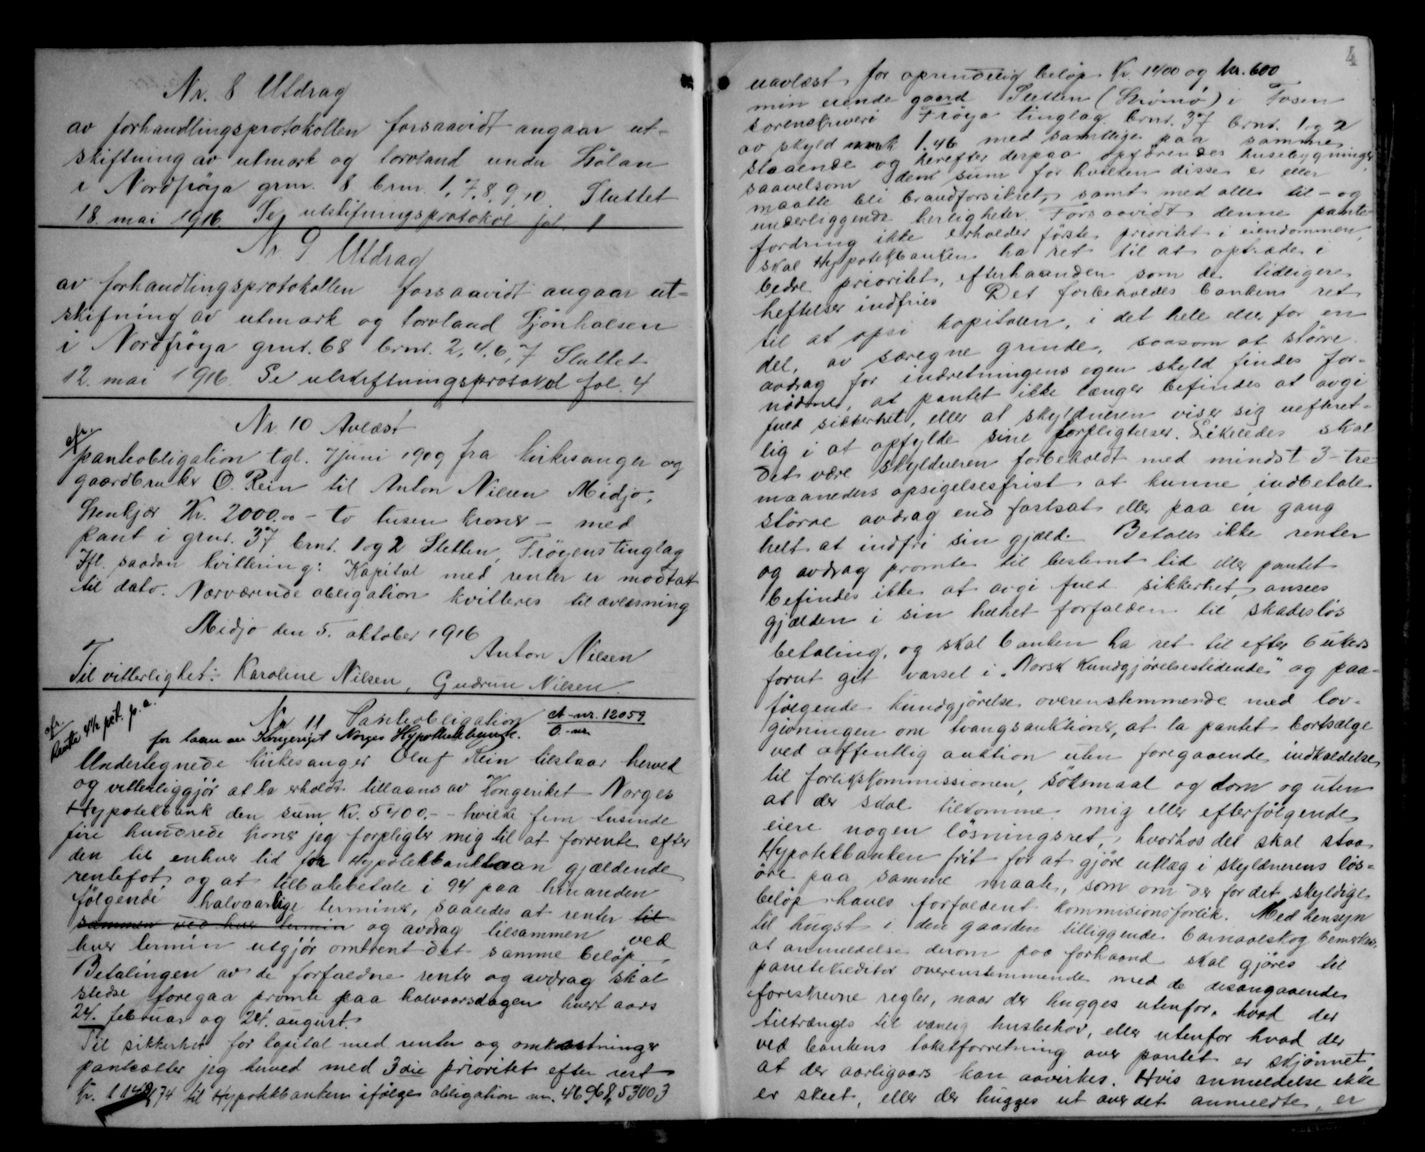 Nr. 8 Utdrag
av forhandlingsprotokollen forsaavidt angaar ut-
skiftning av utmark og torvland under Hølan
i Nordfrøya grnr. 8 brnr. 1, 7, 8, 9, 10. Sluttet
18 mai 1916. Se utskiftningsprotokol fol. 1
Nr. 9 Utdrag
av forhandlingsprotokollen forsaavidt angaar ut-
skifning av utmark og torvland Sjönhalsen
i Nordfrøya grnr. 68 brnr. 2, 4, 6, 7 Sluttet
12. mai 1916. Se utskiftningsprotokol fol. 4
Nr. 10 Avlæst
panteobligation tgl. 7 juni 1909 fra kirkesanger og
gaardbruker O. Rein til Anton Nilsen Midjo,
Stenkjær Kr. 2000.00 - to tusen kroner - med
pant i grnr. 37 brnr. 1 og 2 Sletten, Frøyens tinglag
Ifl. saadan kvittering: Kapital med renter er modtat
til dato. Nærværende obligation kvitteres til avlæsning
Midjo den 5. oktober 1916
Anton Nilsen
Til vitterlighet: Karoline Nilsen, Gudrun Nilsen.
Rente 4½ pct. p. a.
Nr. 11 Panteobligation A-nr. 12059
for laan av Kongeriget Norges Hypothekbank. O.-nr
Undertegnede kirkesanger Oluf Rein tilstaar herved
og vitterliggjør at ha erholdt tillaans av Kongeriket Norges
Hypotekbank den sum Kr. 5400.- - hvilke fem tusinde
fire hundrede kroner jeg forpligter mig til at forrente efter
den til enhver tid for Hypotekbanklaan gjældende
rentefot og at tilbakebetale i 94 paa hinanden
følgende halvaarlige terminer, saaledes at renter til
sammen ved hver termin og avdrag tilsammen ved
hver termin utgjør omtrent det samme beløp.
Betalingen av de forfaldne renter og avdrag skal
stedse foregaa promte paa halvaarsdagen hvert aars
24. februar og 24. august.
Til sikkerhet for kapital med renter og omkostninger
pantsætter jeg herved med 3die prioritet efter rest
Kr. 1142,74 til Hypotekbanken ifølge obligation nr. 46968, 53003
4
uavlæst for oprindelig beløp Kr. 1200 og kr. 600
min eiende gaard Sletten (Strømø) i Fosen
sorenskriveri Frøya tinglag brnr. 37 brnr. 1 og 2
av skyld mark 1.46 med samtlige paa samme
staaende og herefter derpaa opførendes husebygninger,
saavelsom den sum for hvilken disse er eller
maatte bli brandforsikret, samt med alle til- og
underliggende herligheter. Forsaavidt denne pante-
fordring ikke erholder første prioritet i eiendommen,
skal Hypotekbanken ha ret til at optræde i
bedre prioritet, efterhaanden som de tidligere
heftelser indfries. Det forbeholdes banken ret
til at opsi kapitalen, i det hele eller for en
del, av særegne grunde, saasom at større
avdrag for indretningens egen skyld findes for-
nødent, at pantet ikke længer befindes at avgi
fuld sikkerhet, eller at skyldneren viser sig uefteret-
lig i at opfylde sine forpligtelser. Likeledes skal
det være skyldneren forbeholdt med mindst 3-tre
maaneders opsigelsesfrist at kunne indbetale
større avdrag end fastsat eller paa en gang
helt at indfri sin gjæld. Betales ikke renter
og avdrag promte til bestemt tid eller pantet
befindes ikke at avgi fuld sikkerhet, ansees
gjælden i sin helhet forfalden til skadesløs
betaling, og skal banken ha ret til efter 6 ukers
forut git varsel i "Norsk Kundgjørelsestidende" og paa-
følgende kundgjørelse overensstemmende med lov-
givningen om tvangsauktioner, at la pantet bortsælge
ved offentlig auktion uten foregaaende indkaldelse
til forlikskommissionen, søksmaal og dom og uten
at der skal tilkomme mig eller efterfølgende
eiere nogen løsningsret, hvorhos det skal staa
Hypotekbanken frit for at gjøre utlæg i skyldnerens løs-
øre paa samme maate, som om der for det skyldige
beløp haves forfaldent kommisionsforlik. Med hensyn
til hugst i den gaarden tilliggende barnaaleskog bemerkes,
at anmeldelse derom paa forhaand skal gjøres til
pantekreditor overensstemmende med de desangaaende
foreskrevne regler, naar der hugges utenfor, hvad der
tiltrænges til vanlig husbehov, eller utenfor hvad der
ved bankens takstforretning over pantet er skjønnet,
at der aarligaars kan avvirkes. Hvis anmeldelse ikke
er skeet, eller der hugges ut over det anmeldte, er